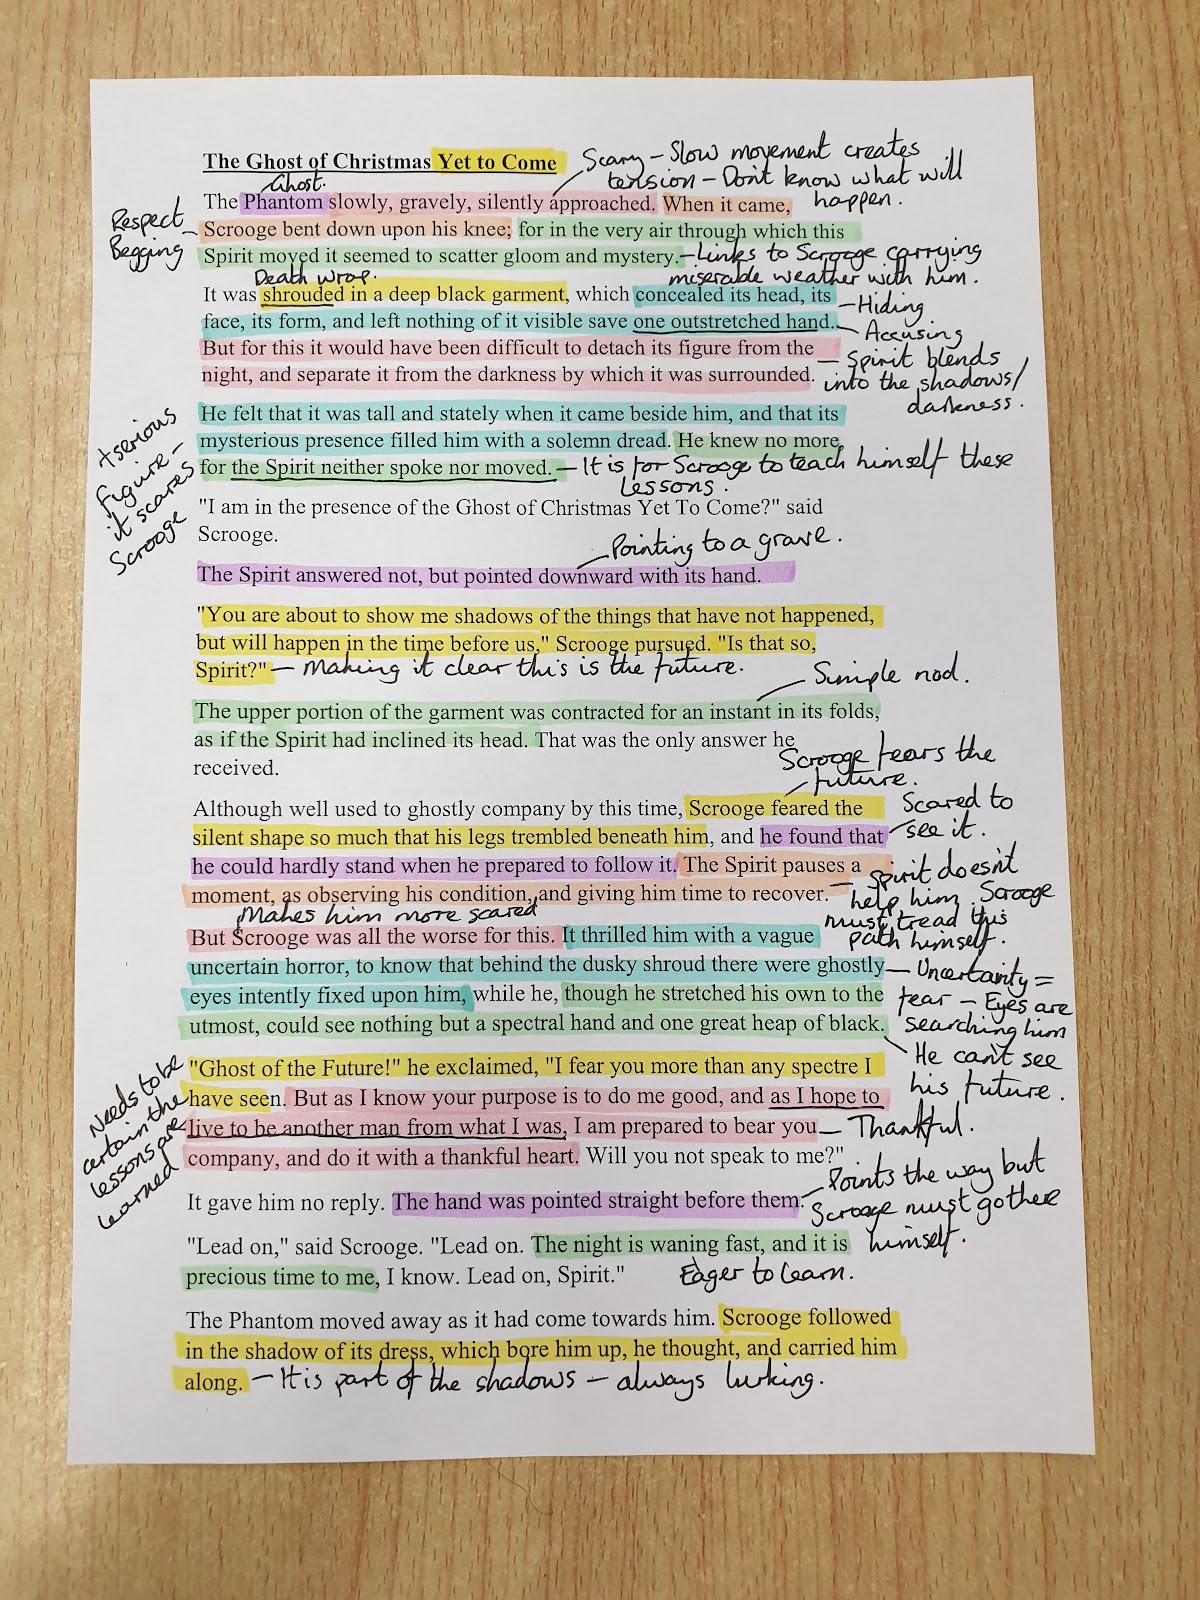 The Ghost of Christmas Yet to Come
Scary - Slow movement creates
tension - Don't know what will
happen.
Ghost.
The Phantom slowly, gravely, silently approached. When it came,
Respect
Begging
Scrooge bent down upon his knee; for in the very air through which this
Spirit moved it seemed to scatter gloom and mystery.
- Links to Scrooge carrying
miserable weather with him.
Death wrap.
It was shrouded in a deep black garment, which concealed its head, its
- Hiding
face, its form, and left nothing of it visible save one outstretched hand.
- Accusing
But for this it would have been difficult to detach its figure from the
night, and separate it from the darkness by which it was surrounded.
- Spirit blends
into the shadows/
darkness.
He felt that it was tall and stately when it came beside him, and that its
mysterious presence filled him with a solemn dread. He knew no more,
for the Spirit neither spoke nor moved.
- It is for Scrooge to teach himself these
lessons.
A serious
figure -
it scares
Scrooge
"I am in the presence of the Ghost of Christmas Yet To Come?" said
Scrooge.
Pointing to a grave.
The Spirit answered not, but pointed downward with its hand.
"You are about to show me shadows of the things that have not happened,
but will happen in the time before us," Scrooge pursued. "Is that so,
Spirit?"
- Making it clear this is the future.
Simple nod.
The upper portion of the garment was contracted for an instant in its folds,
as if the Spirit had inclined its head. That was the only answer he
received.
Scrooge fears the
future.
Although well used to ghostly company by this time, Scrooge feared the
silent shape so much that his legs trembled beneath him, and he found that
Scared to
see it.
he could hardly stand when he prepared to follow it. The Spirit pauses a
moment, as observing his condition, and giving him time to recover.
- Spirit doesn't
help him. Scrooge
must tread this
path himself.
Makes him more scared
But Scrooge was all the worse for this. It thrilled him with a vague
uncertain horror, to know that behind the dusky shroud there were ghostly
eyes intently fixed upon him, while he, though he stretched his own to the
utmost, could see nothing but a spectral hand and one great heap of black.
- Uncertainty =
fear - Eyes are
searching him
He can't see
his future.
Needs to be
certain the
lessons are
learned
"Ghost of the Future!" he exclaimed, "I fear you more than any spectre I
have seen. But as I know your purpose is to do me good, and as I hope to
live to be another man from what I was, I am prepared to bear you
- Thankful.
company, and do it with a thankful heart. Will you not speak to me?"
It gave him no reply. The hand was pointed straight before them.
Points the way but
Scrooge must go there
himself.
"Lead on," said Scrooge. "Lead on. The night is waning fast, and it is
precious time to me, I know. Lead on, Spirit."
Eager to learn.
The Phantom moved away as it had come towards him. Scrooge followed
in the shadow of its dress, which bore him up, he thought, and carried him
along.
- It is part of the shadows - always lurking.